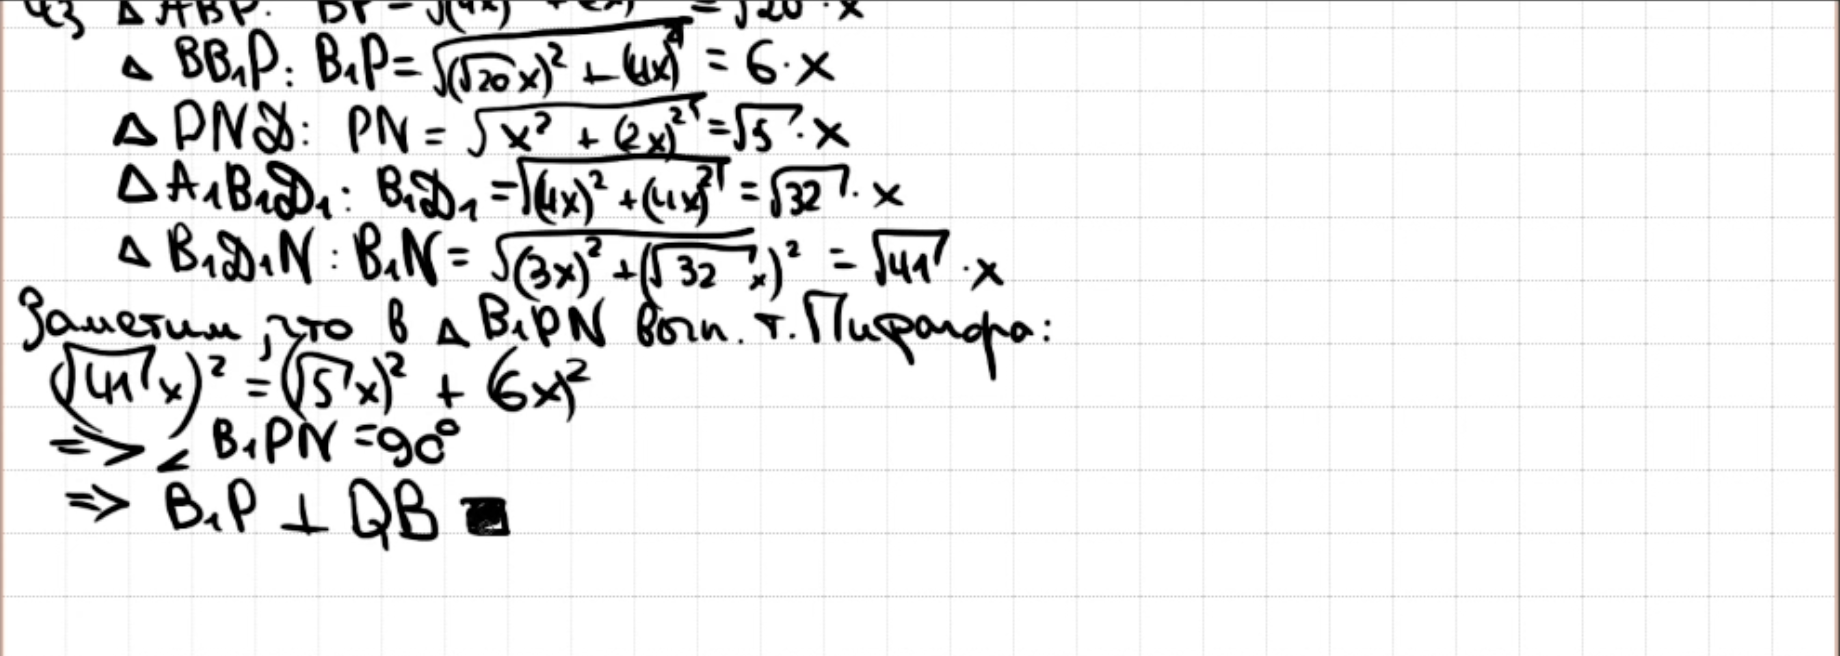 43 △ ABP: BP = √((4x)² + (2x)²) = √20 · x
△ BB₁P: B₁P = √((√20x)² + (4x)²) = 6 · x
△ PND: PN = √(x² + (2x)²) = √5 · x
△ A₁B₁D₁: B₁D₁ = √((4x)² + (4x)²) = √32 · x
△ B₁D₁N: B₁N = √((3x)² + (√32 x)²) = √41 · x
Заметим, что в △ B₁PN вып. т. Пифагора:
(√41 x)² = (√5 x)² + (6x)²
=> ∠ B₁PN = 90°
=> B₁P ⊥ QB ■